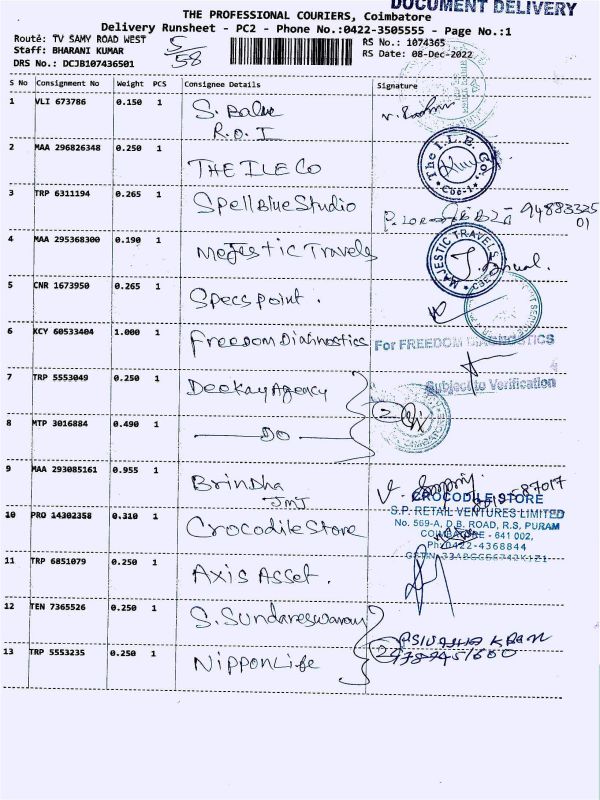 DOCUMENT DELIVERY
THE PROFESSIONAL COURIERS, Coimbatore
Delivery Runsheet - PC2 - Phone No.:0422-3505555 - Page No.:1
Route: TV SAMY ROAD WEST 5/58 RS No.: 1074365
Staff: BHARANI KUMAR RS Date: 08-Dec-2022
DRS No.: DCJB107436501
S No Consignment No Weight PCS Consignee Details Signature
1 VLI 673786 0.150 1 S. Balu
R.O.I
2 MAA 296826348 0.250 1 THE ILE Co
The I.L.E. Co. Cbe-1
3 TRP 6311194 0.265 1 SpellBlueStudio 94883325
01
4 MAA 295368300 0.190 1 Mejestic Travels
MAJESTIC TRAVELS
5 CNR 1673950 0.265 1 Specspoint.
6 KCY 60533404 1.000 1 Freedom Diagnostics
For FREEDOM DIAGNOSTICS
Subject to Verification
7 TRP 5553049 0.250 1 Deekay Agency
2
8 MTP 3016884 0.490 1 DO
9 MAA 293085161 0.955 1 Brindha
JMJ
10 PRO 14302358 0.310 1 Crocodile Store
CROCODILE STORE
S.P. RETAIL VENTURES LIMITED
No. 569-A, D.B. ROAD, R.S. PURAM
COIMBATORE - 641 002,
Ph: 0422-4368844
11 TRP 6851079 0.250 1 Axis Asset.
12 TEN 7365526 0.250 1 S. Sundareswaran
2
13 TRP 5553235 0.250 1 Nippon Life